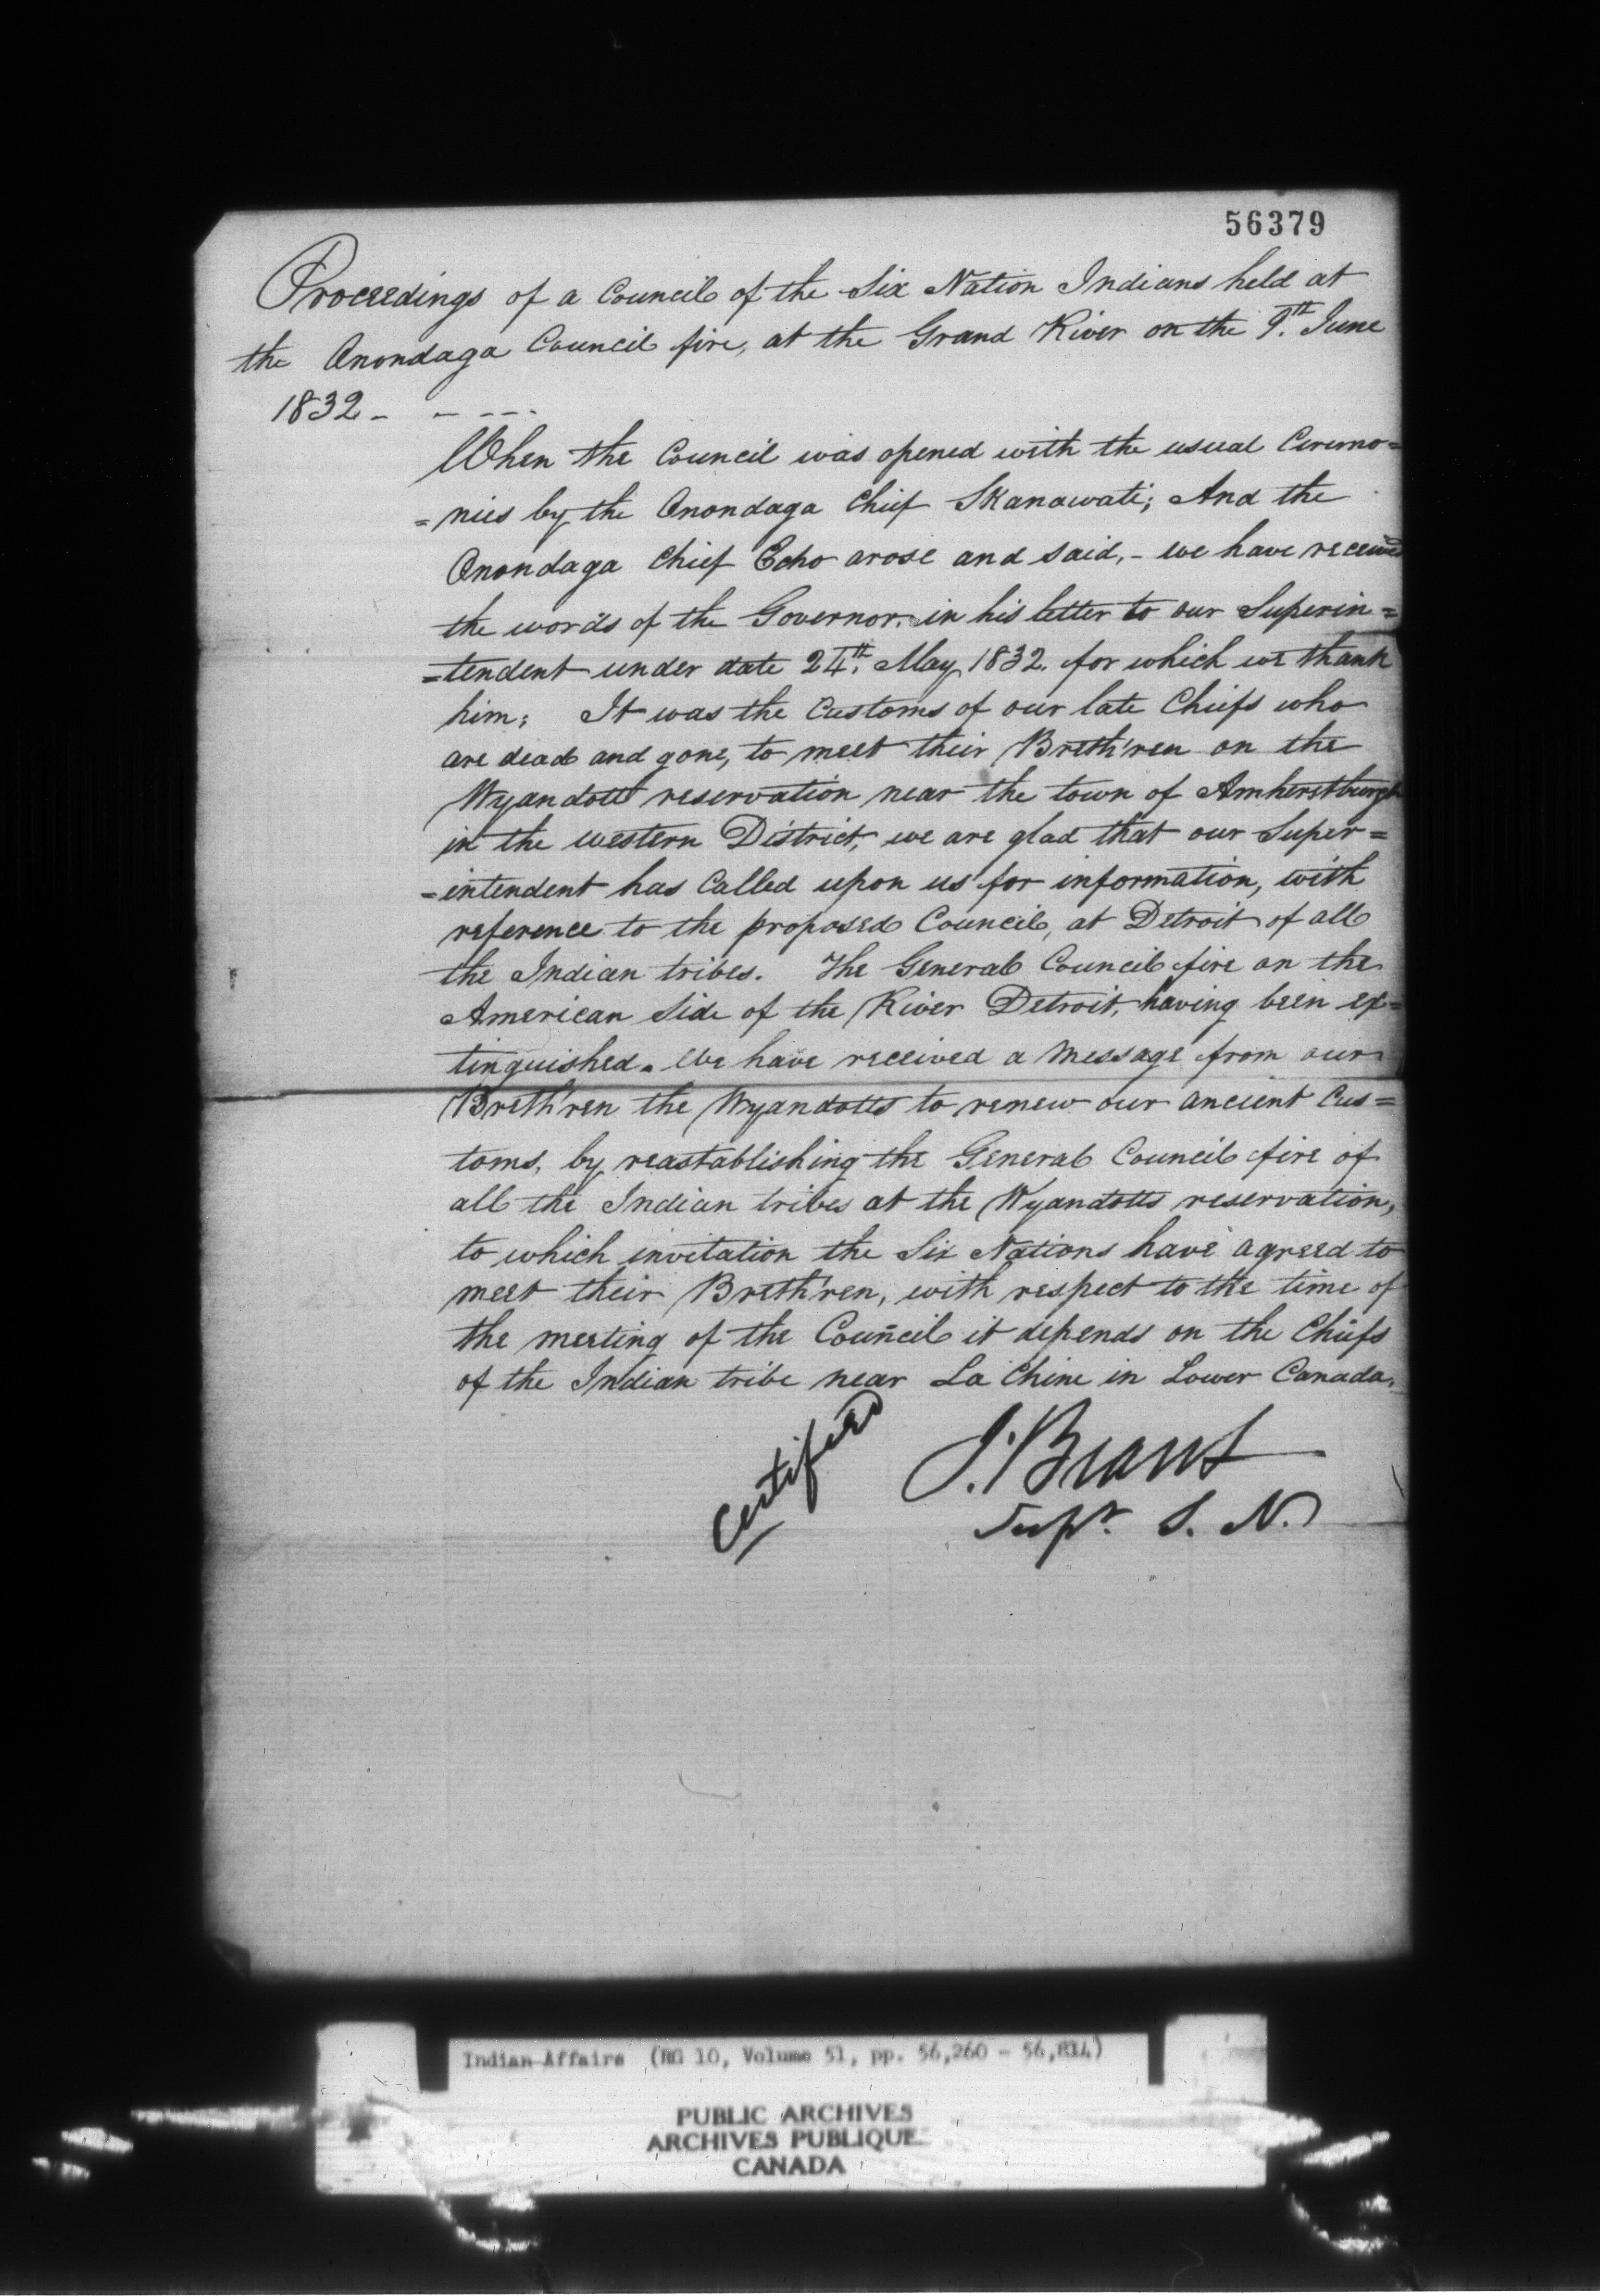 56379
Proceedings of a Council of the Six Nation Indians held at
the Onondaga Council fire, at the Grand River on the 9.th June
1832 - - - - -
When the Council was opened with the usual Ceremo=
=nies by the Onondaga Chief Skanawati; And the
Onondaga Chief Echo arose and said, - we have received
the words of the Governor, in his letter to our Superin=
=tendent under date 24.th May 1832. for which we thank
him; It was the Customs of our late Chiefs who
are dead and gone, to meet their Breth'ren on the
Wyandott reservation near the town of Amherstburgh
in the western District, we are glad that our Super=
=intendent has Called upon us for information, with
reference to the proposed Council, at Detroit of all
the Indian tribes. The General Council fire on the
American Side of the River Detroit, having been ex=
tinguished. We have received a Message from our
Breth'ren the Wyandotts to renew our ancient Cus=
toms, by reastablishing the General Council fire of
all the Indian tribes at the Wyandotts reservation,
to which invitation the Six Nations have agreed to
meet their Breth'ren, with respect to the time of
the meeting of the Council it depends on the Chiefs
of the Indian tribe near La Chine in Lower Canada.
Certified J. Brant
Supt. S. N.
Indian Affairs (RG 10, Volume 51, pp. 56,260 - 56,814)
PUBLIC ARCHIVES
ARCHIVES PUBLIQUE
CANADA